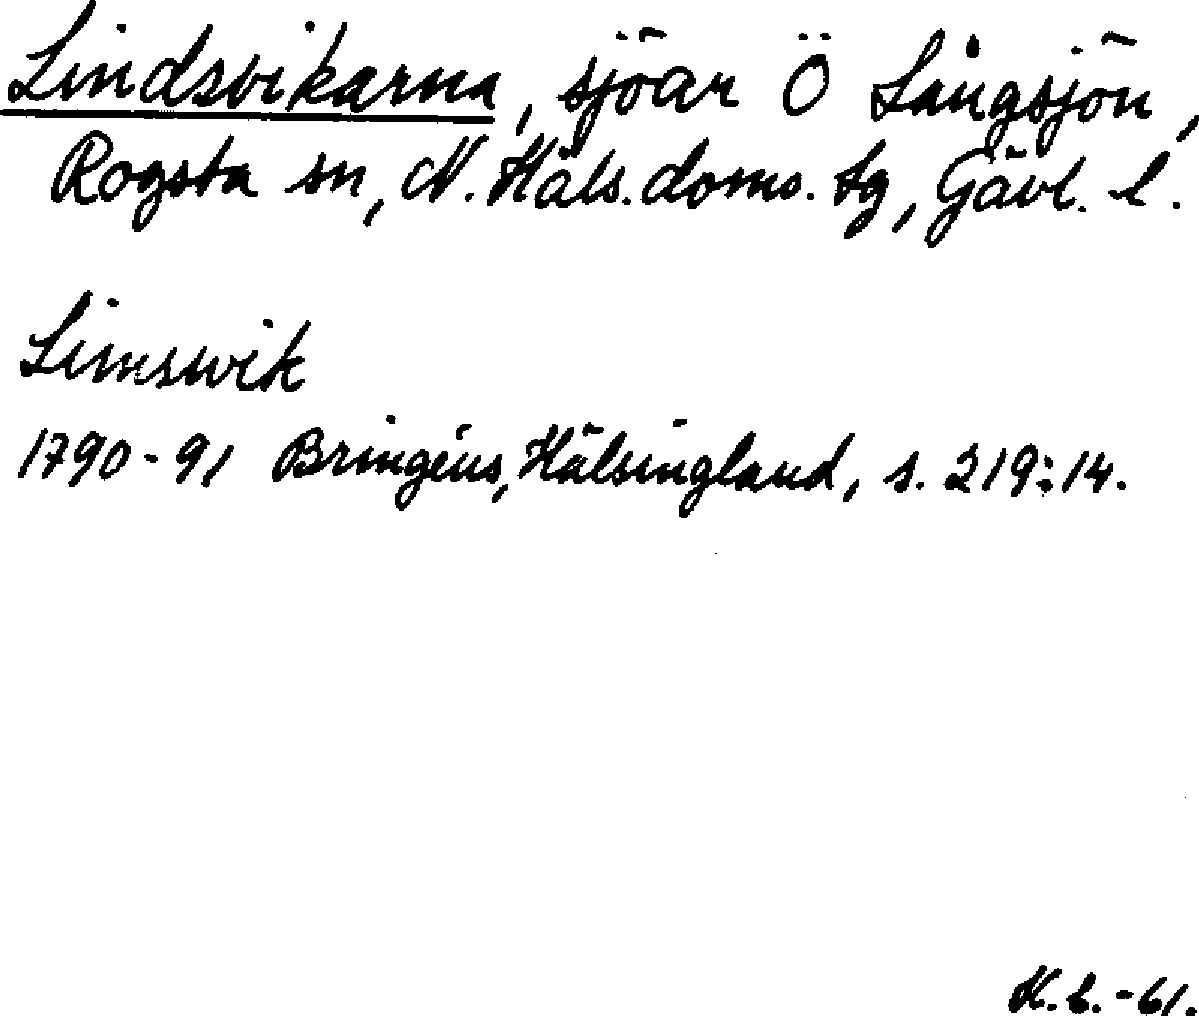 Lindsvikarna, sjöar Ö Långsjön,
Rogsta sn, N. Häls. doms. tg, Gävl. l.
Limswik
1790-91 Bringéus, Hälsingland, s. 219:14.
H.b.-61.